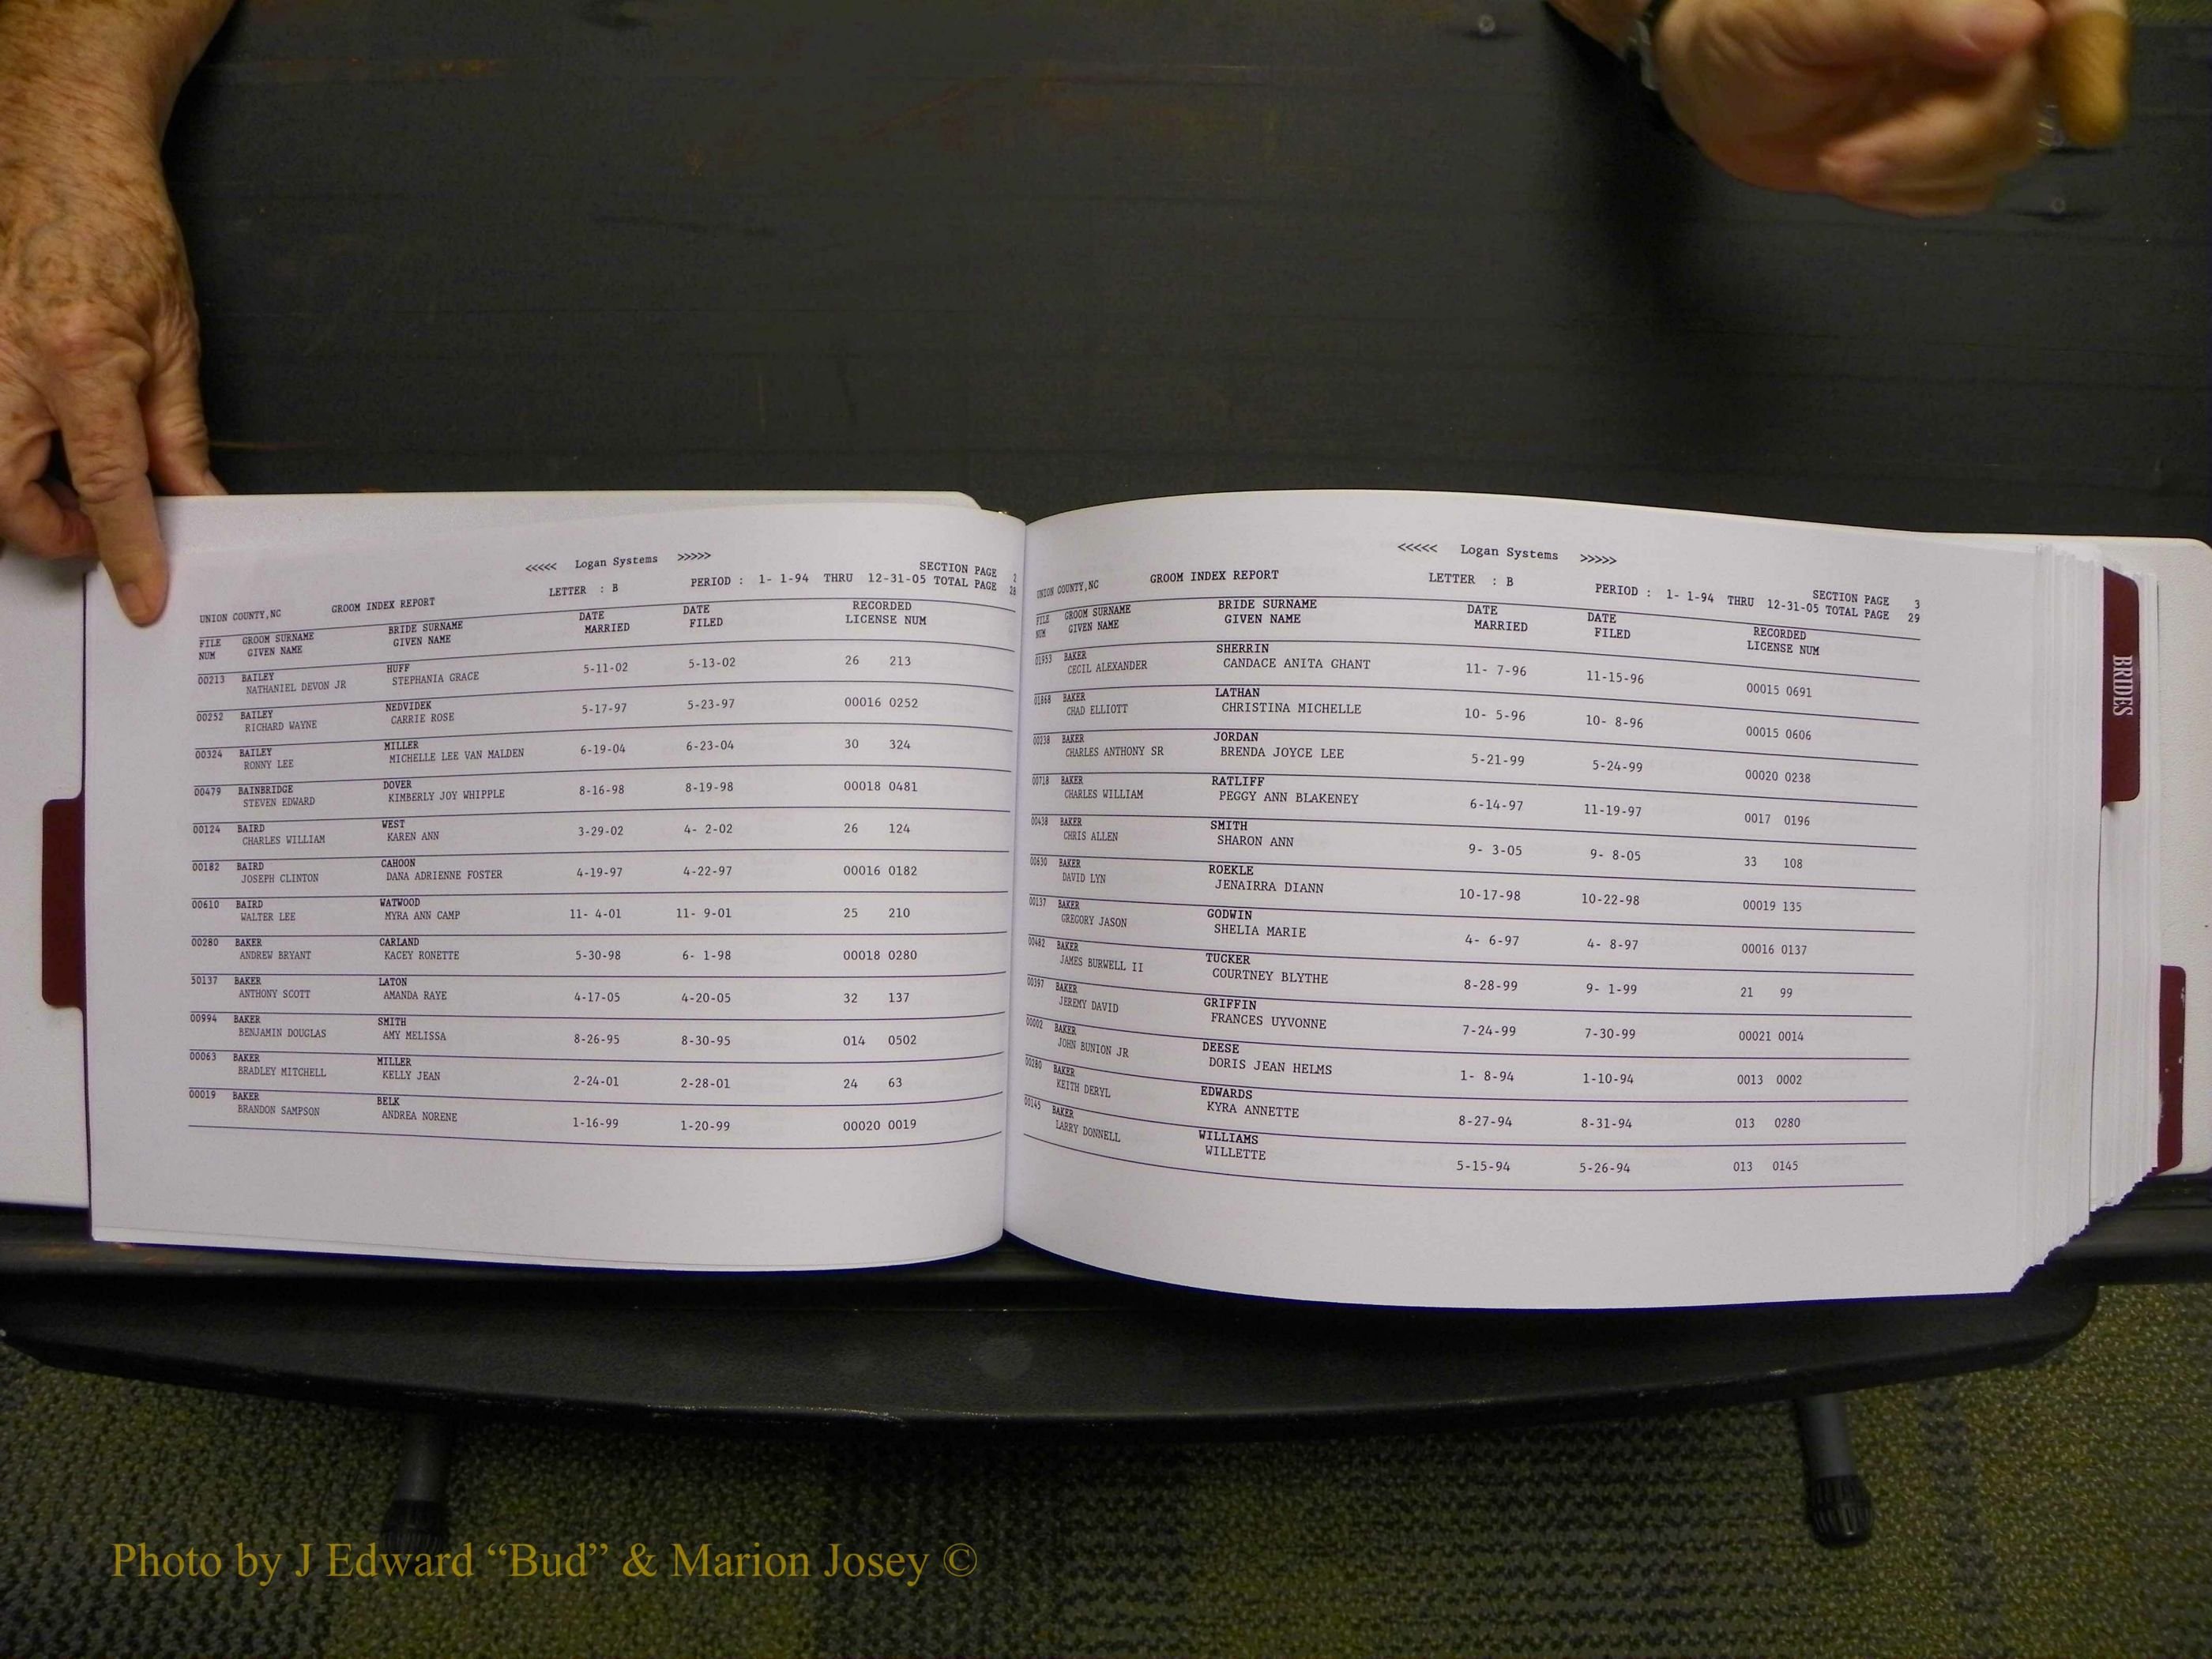 <<<<< Logan Systems >>>>>
SECTION PAGE 2
UNION COUNTY,NC GROOM INDEX REPORT LETTER : B PERIOD : 1- 1-94 THRU 12-31-05 TOTAL PAGE 28
FILE GROOM SURNAME BRIDE SURNAME DATE DATE RECORDED
NUM GIVEN NAME GIVEN NAME MARRIED FILED LICENSE NUM
00213 BAILEY HUFF 5-11-02 5-13-02 26 213
NATHANIEL DEVON JR STEPHANIA GRACE
00252 BAILEY NEDVIDEK 5-17-97 5-23-97 00016 0252
RICHARD WAYNE CARRIE ROSE
00324 BAILEY MILLER 6-19-04 6-23-04 30 324
RONNY LEE MICHELLE LEE VAN MALDEN
00479 BAINBRIDGE DOVER 8-16-98 8-19-98 00018 0481
STEVEN EDWARD KIMBERLY JOY WHIPPLE
00124 BAIRD WEST 3-29-02 4- 2-02 26 124
CHARLES WILLIAM KAREN ANN
00182 BAIRD CAHOON 4-19-97 4-22-97 00016 0182
JOSEPH CLINTON DANA ADRIENNE FOSTER
00610 BAIRD WATWOOD 11- 4-01 11- 9-01 25 210
WALTER LEE MYRA ANN CAMP
00280 BAKER CARLAND 5-30-98 6- 1-98 00018 0280
ANDREW BRYANT KACEY RONETTE
50137 BAKER LATON 4-17-05 4-20-05 32 137
ANTHONY SCOTT AMANDA RAYE
00994 BAKER SMITH 8-26-95 8-30-95 014 0502
BENJAMIN DOUGLAS AMY MELISSA
00063 BAKER MILLER 2-24-01 2-28-01 24 63
BRADLEY MITCHELL KELLY JEAN
00019 BAKER BELK 1-16-99 1-20-99 00020 0019
BRANDON SAMPSON ANDREA NORENE
<<<<< Logan Systems >>>>>
SECTION PAGE 3
UNION COUNTY,NC GROOM INDEX REPORT LETTER : B PERIOD : 1- 1-94 THRU 12-31-05 TOTAL PAGE 29
FILE GROOM SURNAME BRIDE SURNAME DATE DATE RECORDED
NUM GIVEN NAME GIVEN NAME MARRIED FILED LICENSE NUM
01953 BAKER SHERRIN 11- 7-96 11-15-96 00015 0691
CECIL ALEXANDER CANDACE ANITA GHANT
01868 BAKER LATHAN 10- 5-96 10- 8-96 00015 0606
CHAD ELLIOTT CHRISTINA MICHELLE
00238 BAKER JORDAN 5-21-99 5-24-99 00020 0238
CHARLES ANTHONY SR BRENDA JOYCE LEE
00718 BAKER RATLIFF 6-14-97 11-19-97 0017 0196
CHARLES WILLIAM PEGGY ANN BLAKENEY
00438 BAKER SMITH 9- 3-05 9- 8-05 33 108
CHRIS ALLEN SHARON ANN
00630 BAKER ROEKLE 10-17-98 10-22-98 00019 135
DAVID LYN JENAIRRA DIANN
00137 BAKER GODWIN 4- 6-97 4- 8-97 00016 0137
GREGORY JASON SHELIA MARIE
00482 BAKER TUCKER 8-28-99 9- 1-99 21 99
JAMES BURWELL II COURTNEY BLYTHE
00397 BAKER GRIFFIN 7-24-99 7-30-99 00021 0014
JEREMY DAVID FRANCES UYVONNE
00002 BAKER DEESE 1- 8-94 1-10-94 0013 0002
JOHN BUNION JR DORIS JEAN HELMS
00280 BAKER EDWARDS 8-27-94 8-31-94 013 0280
KEITH DERYL KYRA ANNETTE
00145 BAKER WILLIAMS 5-15-94 5-26-94 013 0145
LARRY DONNELL WILLETTE
BRIDES
Photo by J Edward “Bud” & Marion Josey ©